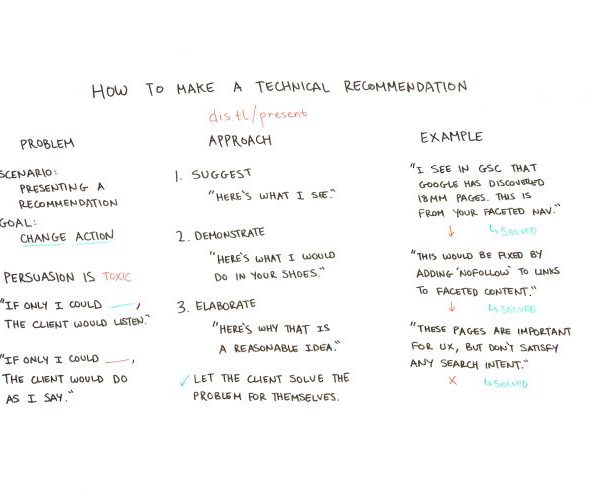 HOW TO MAKE A TECHNICAL RECOMMENDATION
dis.tl/present
PROBLEM
SCENARIO:
PRESENTING A
RECOMMENDATION
GOAL:
CHANGE ACTION
PERSUASION IS TOXIC
"IF ONLY I COULD ___,
THE CLIENT WOULD LISTEN."
"IF ONLY I COULD ___,
THE CLIENT WOULD DO
AS I SAY."
APPROACH
1. SUGGEST
"HERE'S WHAT I SEE."
2. DEMONSTRATE
"HERE'S WHAT I WOULD
DO IN YOUR SHOES."
3. ELABORATE
"HERE'S WHY THAT IS
A REASONABLE IDEA."
✓ LET THE CLIENT SOLVE THE
PROBLEM FOR THEMSELVES.
EXAMPLE
"I SEE IN GSC THAT
GOOGLE HAS DISCOVERED
18MM PAGES. THIS IS
FROM YOUR FACETED NAV."
↓ ↳SOLVED
"THIS WOULD BE FIXED BY
ADDING 'NOFOLLOW' TO LINKS
TO FACETED CONTENT."
↓ ↳SOLVED
"THESE PAGES ARE IMPORTANT
FOR UX, BUT DON'T SATISFY
ANY SEARCH INTENT."
X ↳SOLVED